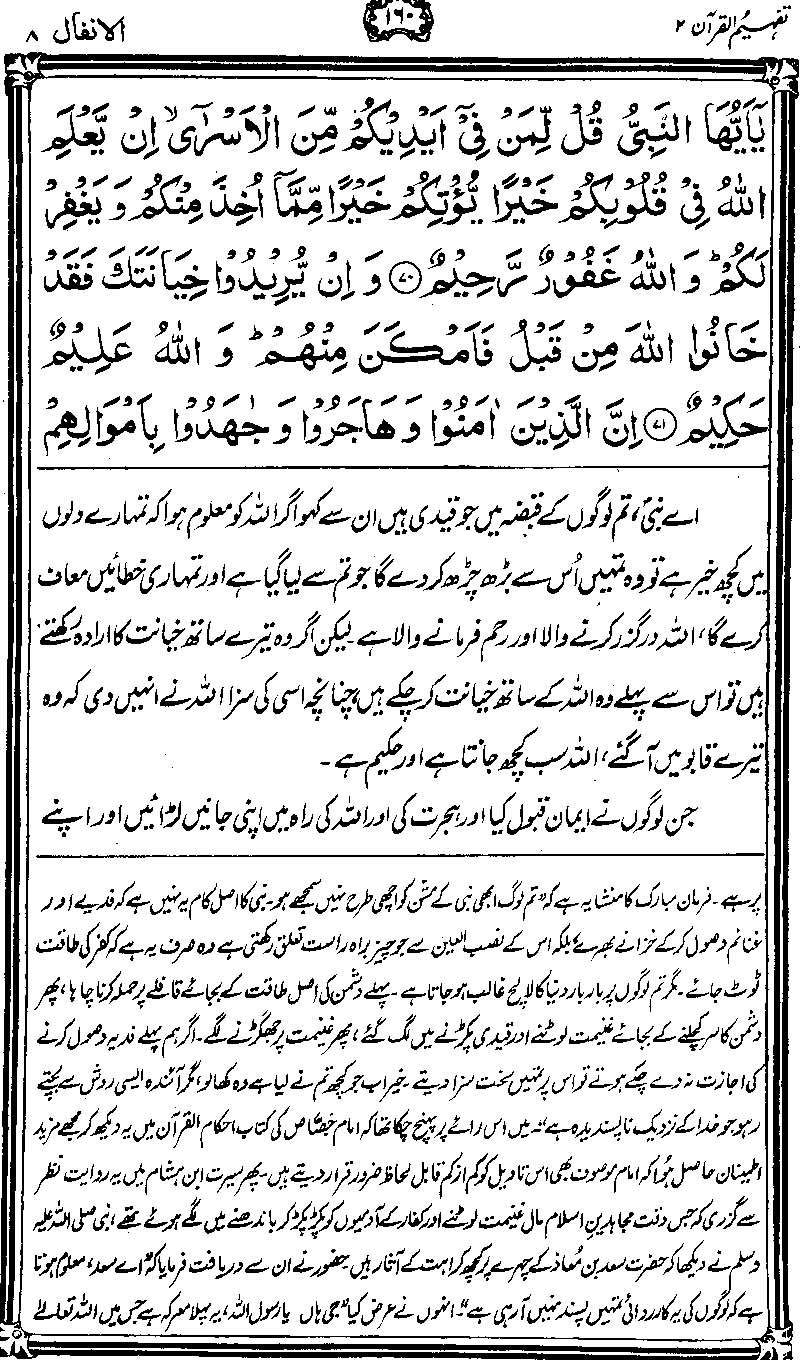 تفہیم القرآن ۲
۱۶۰
الانفال ۸
يٰٓاَيُّهَا النَّبِىُّ قُلْ لِّمَنْ فِىْٓ اَيْدِيْكُمْ مِّنَ الْاَسْرٰٓىۙ اِنْ يَّعْلَمِ
اللّٰهُ فِىْ قُلُوْبِكُمْ خَيْرًا يُّؤْتِكُمْ خَيْرًا مِّمَّاۤ اُخِذَ مِنْكُمْ وَ يَغْفِرْ
لَكُمْؕ وَ اللّٰهُ غَفُوْرٌ رَّحِيْمٌ ﴿۷۰﴾ وَ اِنْ يُّرِيْدُوْا خِيَانَتَكَ فَقَدْ
خَانُوا اللّٰهَ مِنْ قَبْلُ فَاَمْكَنَ مِنْهُمْؕ وَ اللّٰهُ عَلِيْمٌ
حَكِيْمٌ ﴿۷۱﴾ اِنَّ الَّذِيْنَ اٰمَنُوْا وَ هَاجَرُوْا وَ جٰهَدُوْا بِاَمْوَالِهِمْ
اے نبیؐ، تم لوگوں کے قبضہ میں جو قیدی ہیں ان سے کہو اگر اللہ کو معلوم ہوا کہ تمہارے دلوں
میں کچھ خیر ہے تو وہ تمہیں اُس سے بڑھ چڑھ کر دے گا جو تم سے لیا گیا ہے اور تمہاری خطائیں معاف
کرے گا، اللہ درگزر کرنے والا اور رحم فرمانے والا ہے۔ لیکن اگر وہ تیرے ساتھ خیانت کا ارادہ رکھتے
ہیں تو اس سے پہلے وہ اللہ کے ساتھ خیانت کر چکے ہیں، چنانچہ اسی کی سزا اللہ نے انہیں دی کہ وہ
تیرے قابو میں آ گئے، اللہ سب کچھ جانتا ہے اور حکیم ہے۔
جن لوگوں نے ایمان قبول کیا اور ہجرت کی اور اللہ کی راہ میں اپنی جانیں لڑائیں اور اپنے
پر ہے۔ فرمان مبارک کا منشا یہ ہے کہ "تم لوگ ابھی نبی کے مشن کو اچھی طرح نہیں سمجھے ہو۔ نبی کا اصل کام یہ نہیں ہے کہ فدیے اور
غنائم وصول کر کے خزانے بھرے، بلکہ اس کے نصب العین سے جو چیز براہ راست تعلق رکھتی ہے وہ صرف یہ ہے کہ کفر کی طاقت
ٹوٹ جائے۔ مگر تم لوگوں پر بار بار دنیا کا لالچ غالب ہو جاتا ہے۔ پہلے دشمن کی اصل طاقت کے بجائے قافلے پر حملہ کرنا چاہا، پھر
دشمن کا سر کچلنے کے بجائے غنیمت لوٹنے اور قیدی پکڑنے میں لگ گئے، پھر غنیمت پر جھگڑنے لگے۔ اگر ہم پہلے فدیہ وصول کرنے
کی اجازت نہ دے چکے ہوتے تو اس پر تمہیں سخت سزا دیتے۔ خیر اب جو کچھ تم نے لیا ہے وہ کھالو، مگر آئندہ ایسی روش سے بچتے
رہو جو خدا کے نزدیک ناپسندیدہ ہے"۔ میں اس رائے پر پہنچ چکا تھا کہ امام جصّاص کی کتاب احکام القرآن میں یہ دیکھ کر مجھے مزید
اطمینان حاصل ہُوا کہ امام موصوف بھی اس تاویل کو کم از کم قابل لحاظ ضرور قرار دیتے ہیں۔ پھر سیرت ابن ہشام میں یہ روایت نظر
سے گزری کہ جس وقت مجاہدینِ اسلام مال غنیمت لوٹنے اور کفار کے آدمیوں کو پکڑ پکڑ کر باندھنے میں لگے ہوئے تھے، نبی صلی اللہ علیہ
وسلم نے دیکھا کہ حضرت سعد بن مُعاذ کے چہرے پر کچھ کراہت کے آثار ہیں۔ حضور نے ان سے دریافت فرمایا کہ "اے سعد، معلوم ہوتا
ہے کہ لوگوں کی یہ کارروائی تمہیں پسند نہیں آرہی ہے"۔ انہوں نے عرض کیا "جی ہاں یا رسول اللہ، یہ پہلا معرکہ ہے جس میں اللہ تعالےٰ